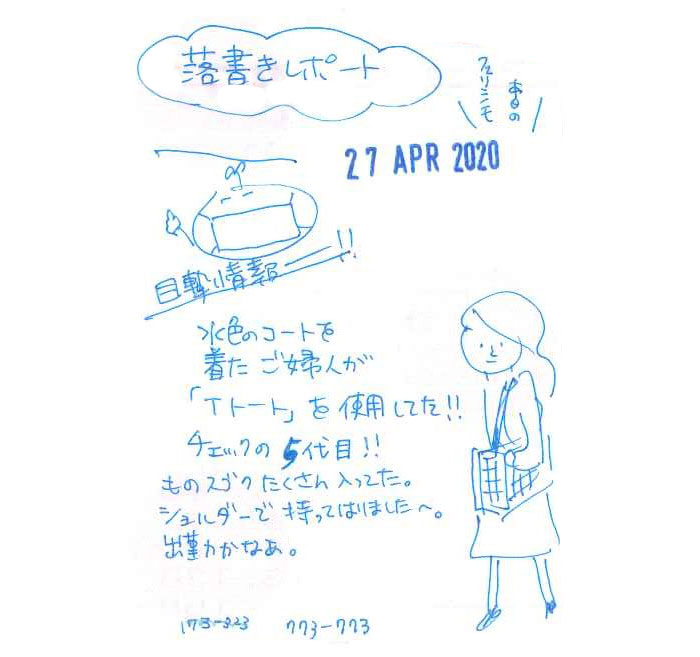 落書きレポート
本日の
フェリシモ
27 APR 2020
目撃情報ー!!
水色のコートを
着た ご婦人が
「Tトート」を使用してた!!
チェックの5代目!!
ものスゴクたくさん入ってた。
ショルダーで持ってはりました〜。
出勤かなあ。
773-773